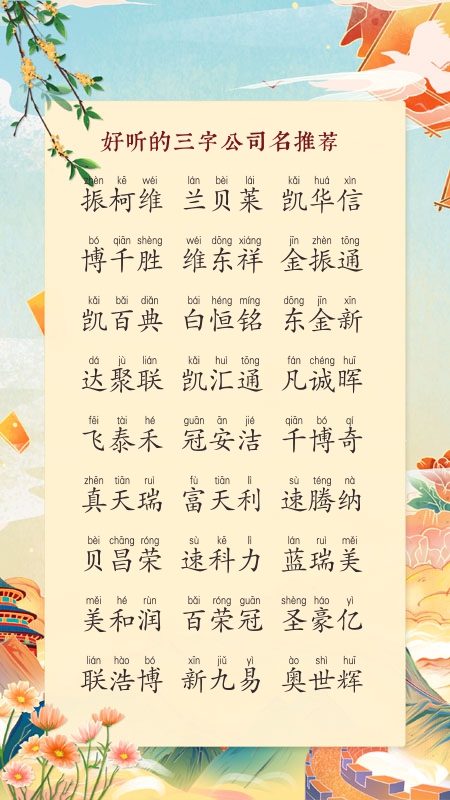 好听的三字公司名推荐
zhèn kē wéi lán bèi lái kǎi huá xìn
振柯维 兰贝莱 凯华信
bó qiān shèng wéi dōng xiáng jīn zhèn tōng
博千胜 维东祥 金振通
kǎi bǎi diǎn bái héng míng dōng jīn xīn
凯百典 白恒铭 东金新
dá jù lián kǎi huì tōng fán chéng huī
达聚联 凯汇通 凡诚晖
fēi tài hé guān ān jié qiān bó qí
飞泰禾 冠安洁 千博奇
zhēn tiān ruì fù tiān lì sù téng nà
真天瑞 富天利 速腾纳
bèi chāng róng sù kē lì lán ruì měi
贝昌荣 速科力 蓝瑞美
měi hé rùn bǎi róng guān shèng háo yì
美和润 百荣冠 圣豪亿
lián hào bó xīn jiǔ yì ào shì huī
联浩博 新九易 奥世辉